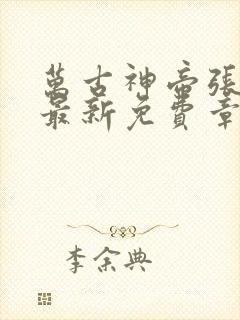 萬古神帝張
最新免費章
李余典